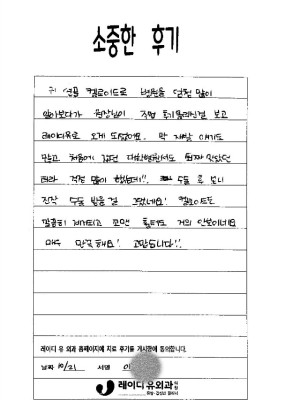 소중한 후기
귀 연골 켈로이드로 병원을 엄청 많이
알아보다가 원장님이 직접 후기 올리신걸 보고
레이디유로 오게 되었어요. 막 재발 얘기도
많고 처음에 갔던 대학병원서도
걱정 많이 했는데!! 수술 후 보니
진작 수술 받을 걸 그랬네요! 켈로이드도
깔끔히 제거되고 꼬맨 흉터도 거의 안보이네요
매우 만족해요! 고맙습니다!!
레이디 유 외과 홈페이지에 치료 후기를 게시함에 동의합니다.
날짜 10/21 서명
레이디유외과의원
유방·갑상선 클리닉